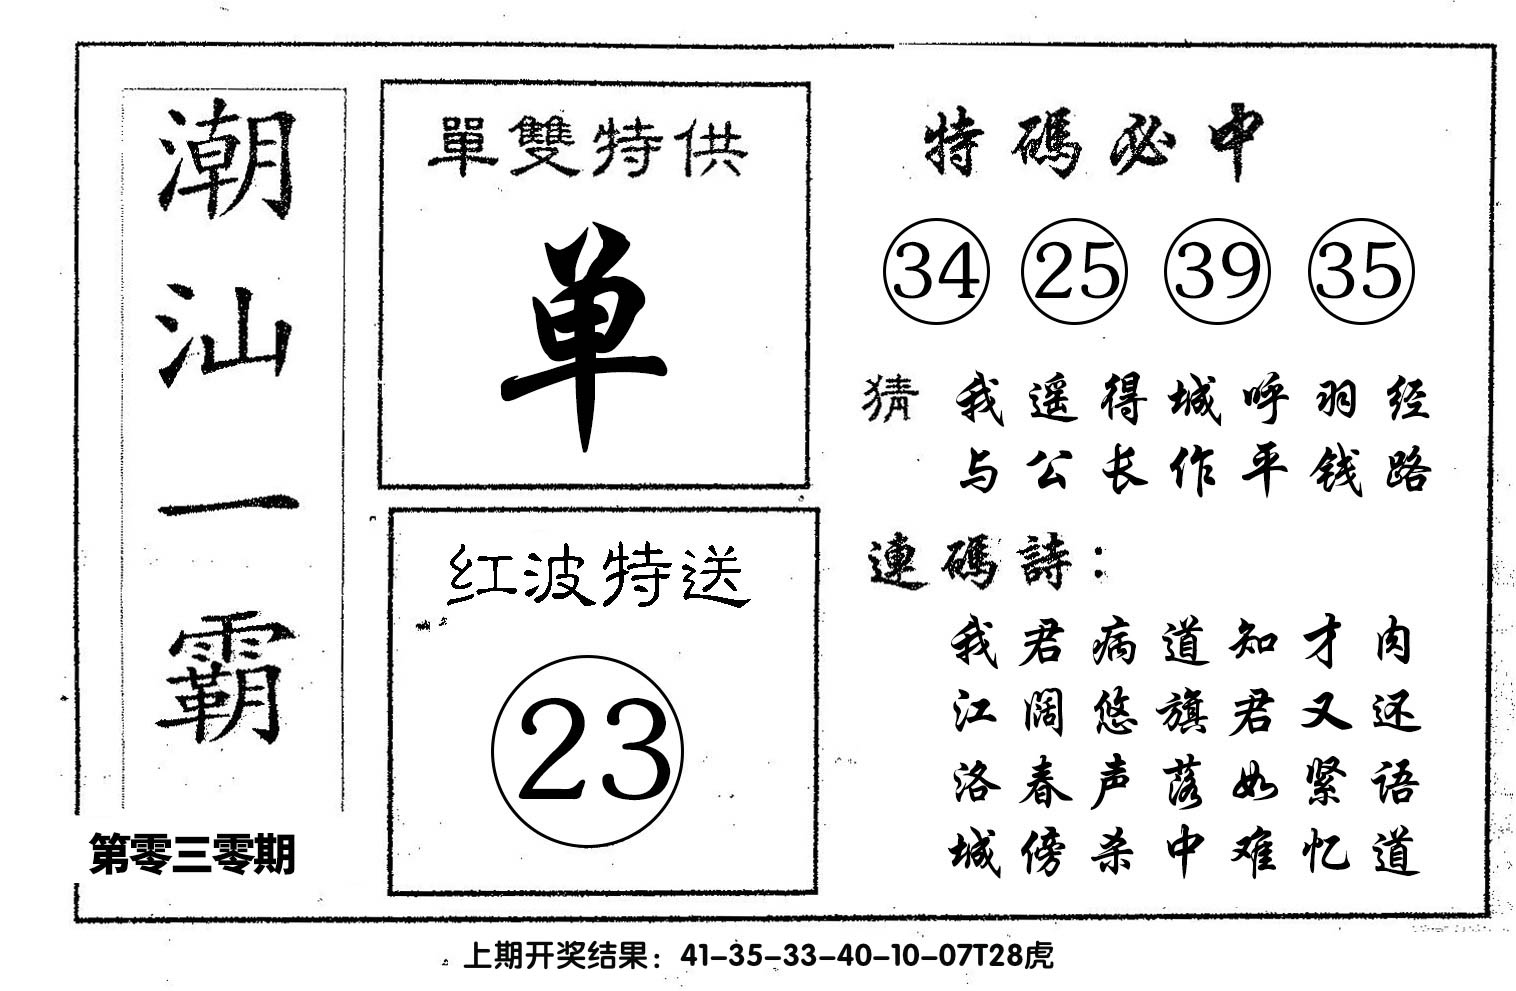 潮汕一霸
第零三零期
單雙特供
单
红波特送
23
特碼必中
34 25 39 35
猜 我遥得城呼羽经
与公长作平钱路
連碼詩：
我君病道知才肉
江阔悠旗君又还
洛春声落如紧语
城傍杀中难忆道
上期开奖结果：41-35-33-40-10-07T28虎